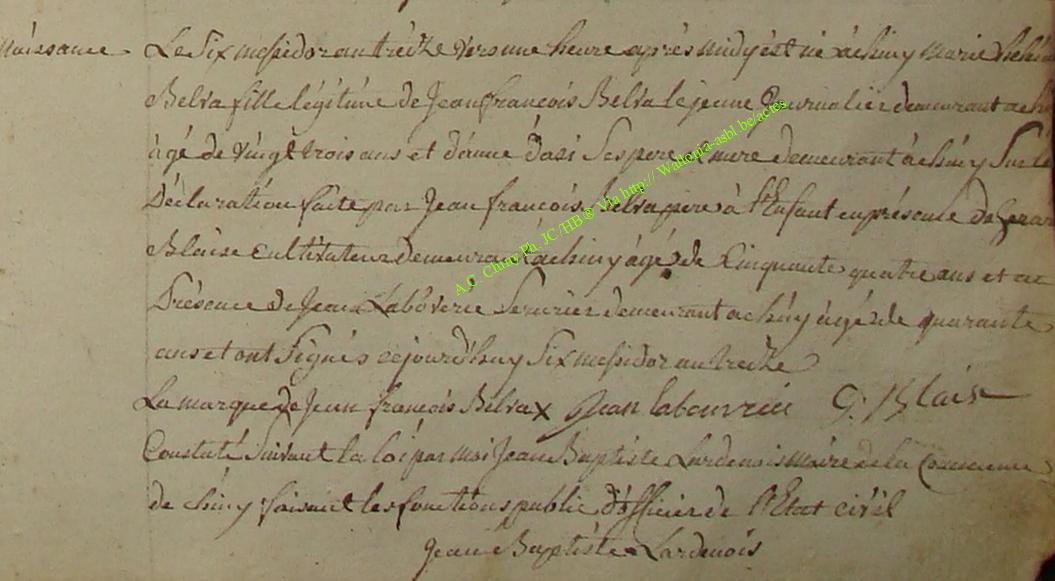 Naissance Le Six messidor an treize vers une heure après midy est né à chiny marie
Belva fille légitime de Jean françois Belva le jeune Journalier demeurant a
âgé de vingt trois ans et d'anne Ses pere & mere demeurant à chiny Sur la
Déclaration faite par Jean françois Belva pere à l'Enfant en présence de
Blaise Cultivateur demeurant à chiny âgé de Cinquante quatre ans et
Présence de Jean Laboverie Serurier demeurant a chiny âgé de quarante
ans et ont Signés cejourd'huy Six messidor an treize
La marque de Jean françois Belva X Jean labouvrie G: Blaise
Constaté Suivant la loi par moi Jean Baptiste Lardenois maire de la Commune
de chiny faisant les fonctions public d'officier de l'Etat civil
Jean Baptiste Lardenois
A.C. Chiny Ph. JC/HB ® Via http:// Wallonia-asbl.be/actes